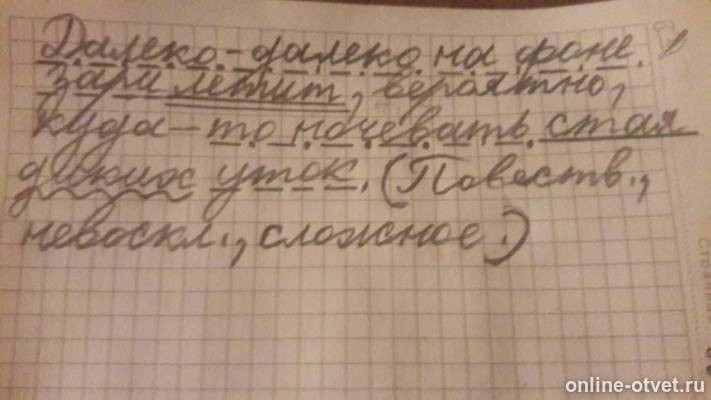 Далеко-далеко на фоне
зари летит, вероятно,
куда-то ночевать стая
диких уток. (Повеств.,
невоскл., сложное.)
online-otvet.ru